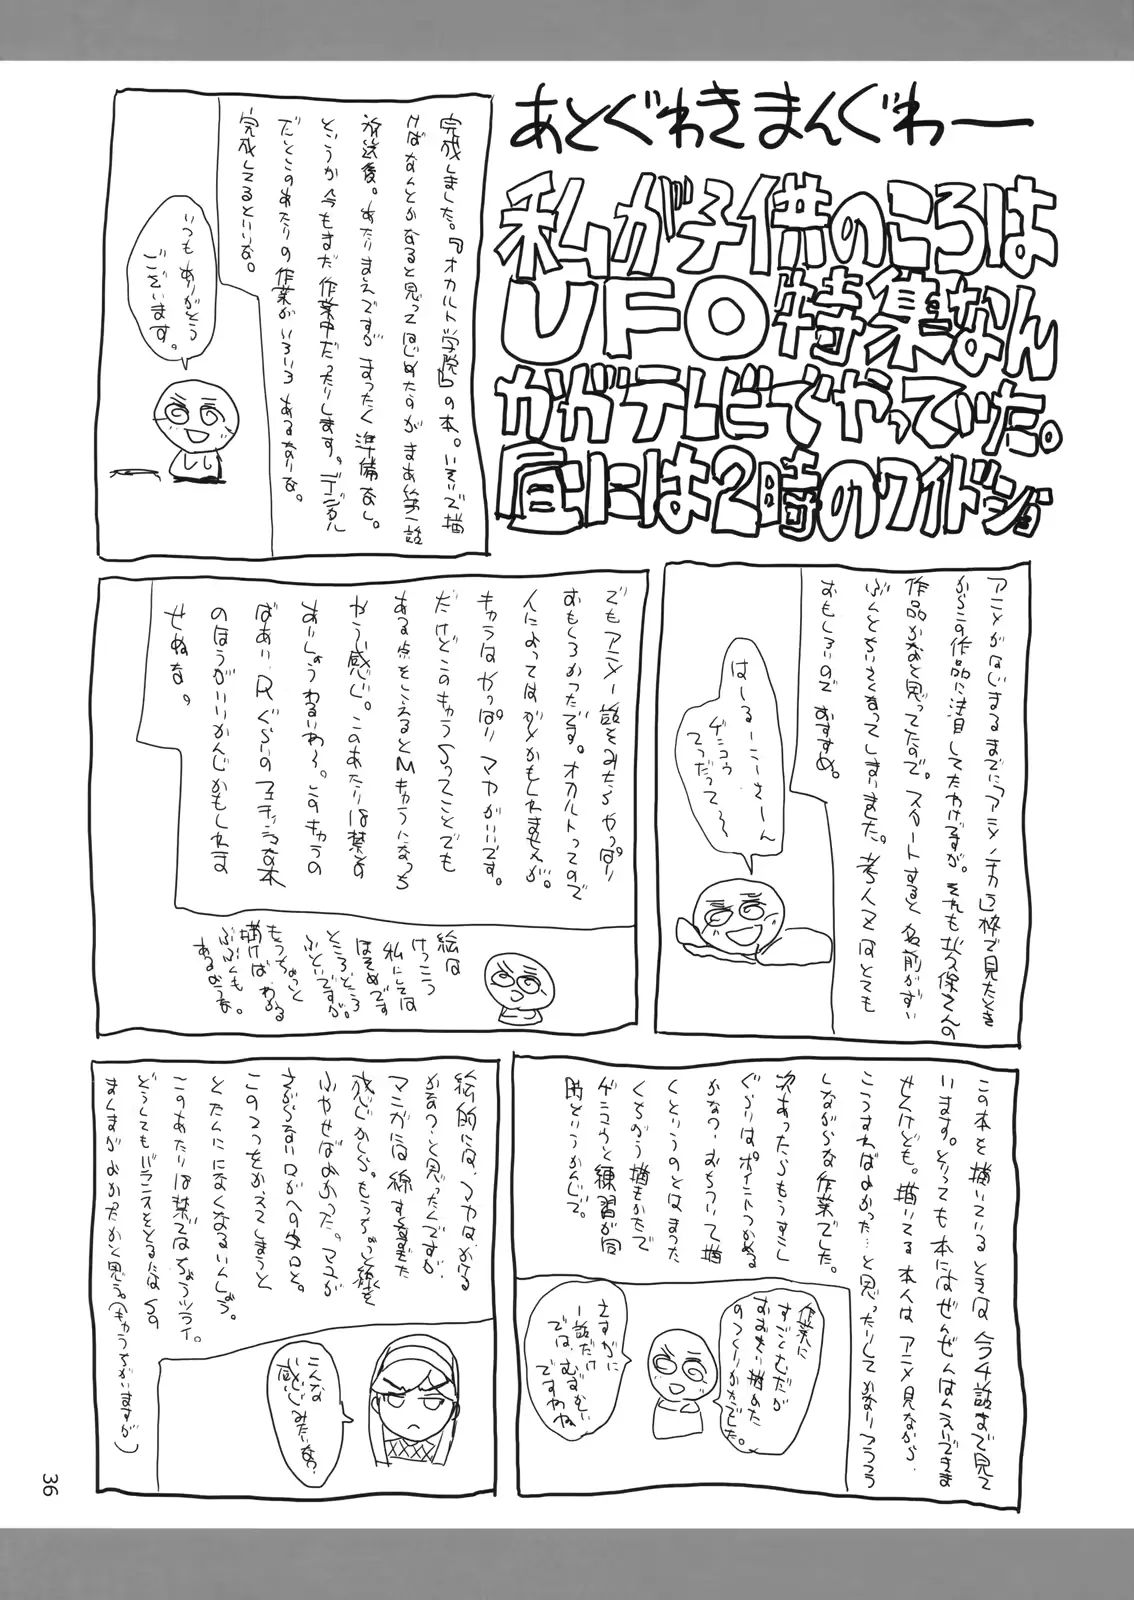 あとぐわきまんぐわー
私が子供のころは
UFO特集なん
かがテレビでやっていた。
昼には2時のワイドショ
完成しました。『オカルト学院』の本。いそいで描
けばなんとかなると思ってはじめたのがまあ第一話
放送後。あたりまえですがまったく準備なし。
というか今もまだ作業中だったりします。デジタル
だとこのあたりの作業がいろいろあるなりな。
完成してるといいな。
いつもありがとう
ございます。
アニメがはじまるまでに「アニメノチカラ」枠で見たとき
からこの作品に注目してたわけですが。それも
作品かなと思ってたので。スタートすると名前がずい
ぶんとちいさくなってしまいました。
おもしろいのでおすすめ。
はーるーこーさーん
ゲンコウ
てつだって〜
でもアニメ一話をみたらやっぱり
おもしろかったです。オカルトってので
人によってはダメかもしれませんが。
キャラはやっぱりマヤがいいです。
だけどこのキャラSってことでも
ある点をこえるとMキャラになっち
ゃう感じ。このあたりは禁書の
あいしょうわるいわ〜。このキャラの
ばあい、Rぐらいのフェチッシュな本
のほうがいいかんじかもしれま
せぬな。
絵は
けっこう
私にしては
ほそめです
ところどころ
ふといですが。
もうちょっと
描けばわかる
ぶぶんも。
あるようなな。
この本を描いているときは今4話まで見て
います。とっても本にはぜんぜんはんえいできま
せんけども。描いてる本人はアニメ見ながら、
こうすればよかった…と思ったりしてかなりフラフラ
しながらな作業でした。
次あったらもうすこし
ぐらいはポイントつかめる
かなっ・おちついて描
くというのとはまった
くちがう描きかたで
ゲンコウと練習が同
時というかんじで。
作業に
すごくむだが
おおきい描めた
のつくりかたでした。
さすがに
一話だけ
では、むずかしい
ですわね
絵的には、マヤはかける
かなっ・と思ったんですが
マンガには線すくなすぎた
感じかしら。もうちょっと線を
ふやせばよかった。マユが
さがらない口がへの字口と。
この2つをかえてしまうと
とたんにになくなるいんしょう。
このあたりは禁書ではちょうツライ。
どうしてもバランスをとるには
まんまがよかったかと思う。(もうちがいますが)
こんな
感じみたいな?
36